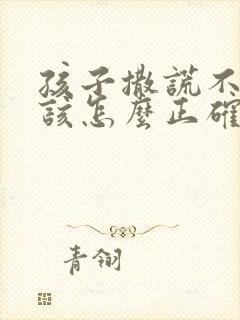 孩子撒謊不
該怎麼正確
青翎